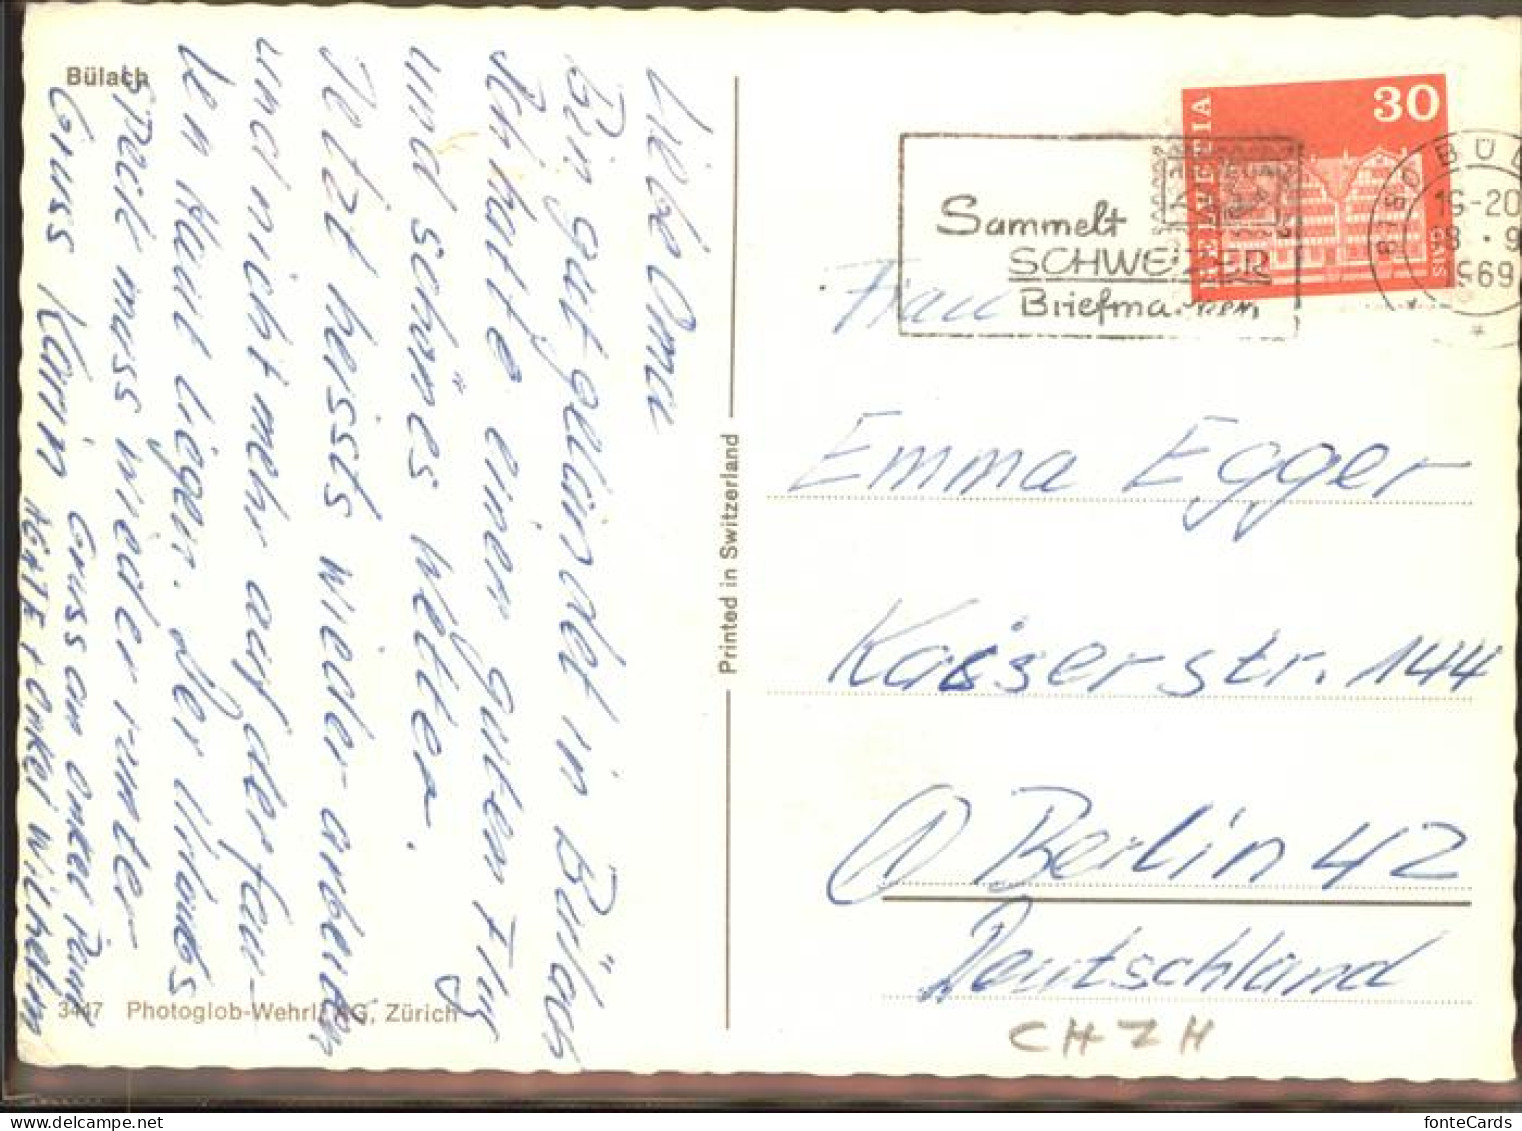 Bülach
Liebe Oma
Bin gut gelandet in Bülach
Ich hatte einen guten Flug
und schönes Wetter.
Jetzt heissts wieder arbeiten
und nicht mehr auf der fau-
len Haut liegen. Der Urlaubs
speck muss wieder runter
Gruss Karin Gruss an Onkel
AGATE + Onkel Wilhelm
3447 Photoglob-Wehrli AG, Zürich
Printed in Switzerland
HELVETIA
30
GAIS
Sammelt
SCHWEIZER
Briefmarken
8180 BÜL
18. 9
1969
Frau
Emma Egger
Kaiserstr. 144
1 Berlin 42
Deutschland
CH ZH
fonteCards